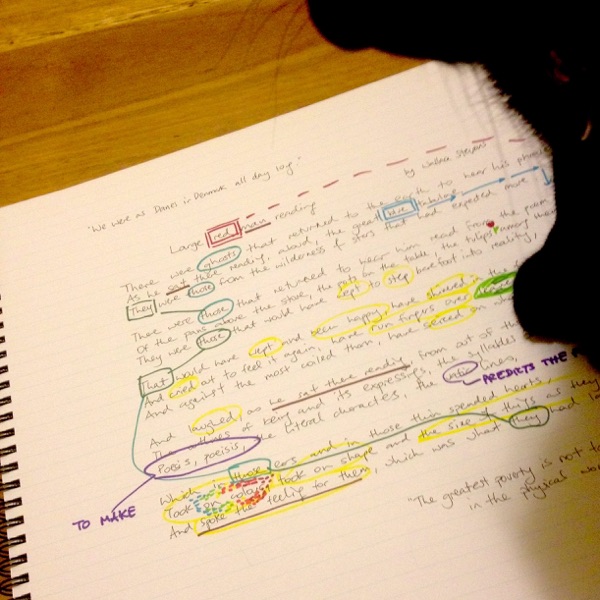 "We were as Danes in Denmark all day long"
Large red man reading
by Wallace Stevens
There were ghosts that returned to the earth to hear his phrases
As he sat there reading, aloud, the great blue tabulae.
They were those from the wilderness of stars that had expected more.
There were those that returned to hear him read from the poem
Of the pans above the stove, the pots on the table, the tulips among them.
They were those that would have wept to step barefoot into reality,
That would have wept and been happy, have shivered in the
And cried out to feel it again, have run fingers over
And against the most coiled thorn, have seized on
And laughed, as he sat there reading, from out of the
The outlines of being and its expressings, the syllables
Poesis, poesis, the literal characters, the vatic lines,
PREDICTS THE
Which in those ears and in those thin spended hearts,
Took on color, took on shape and the size of things as they
And spoke the feeling for them, which was what they had
TO MAKE
"The greatest poverty is not to
in the physical